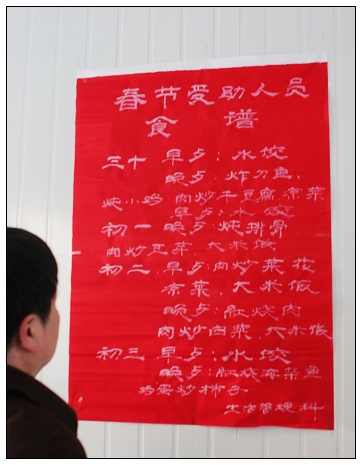 春节受助人员
食谱
三十 早歺：水饺
晚歺：炸刀鱼，
炖小鸡 肉炒干豆腐 凉菜
早歺：水饺
初一 晚歺：炖排骨
肉炒 大米饭
初二 早歺：肉炒菜花
凉菜、大米饭
晚歺：红烧肉
肉炒白菜、大米饭
初三 早歺：水饺
晚歺：红烧海杂鱼
鸡蛋炒柿子
生活管理科